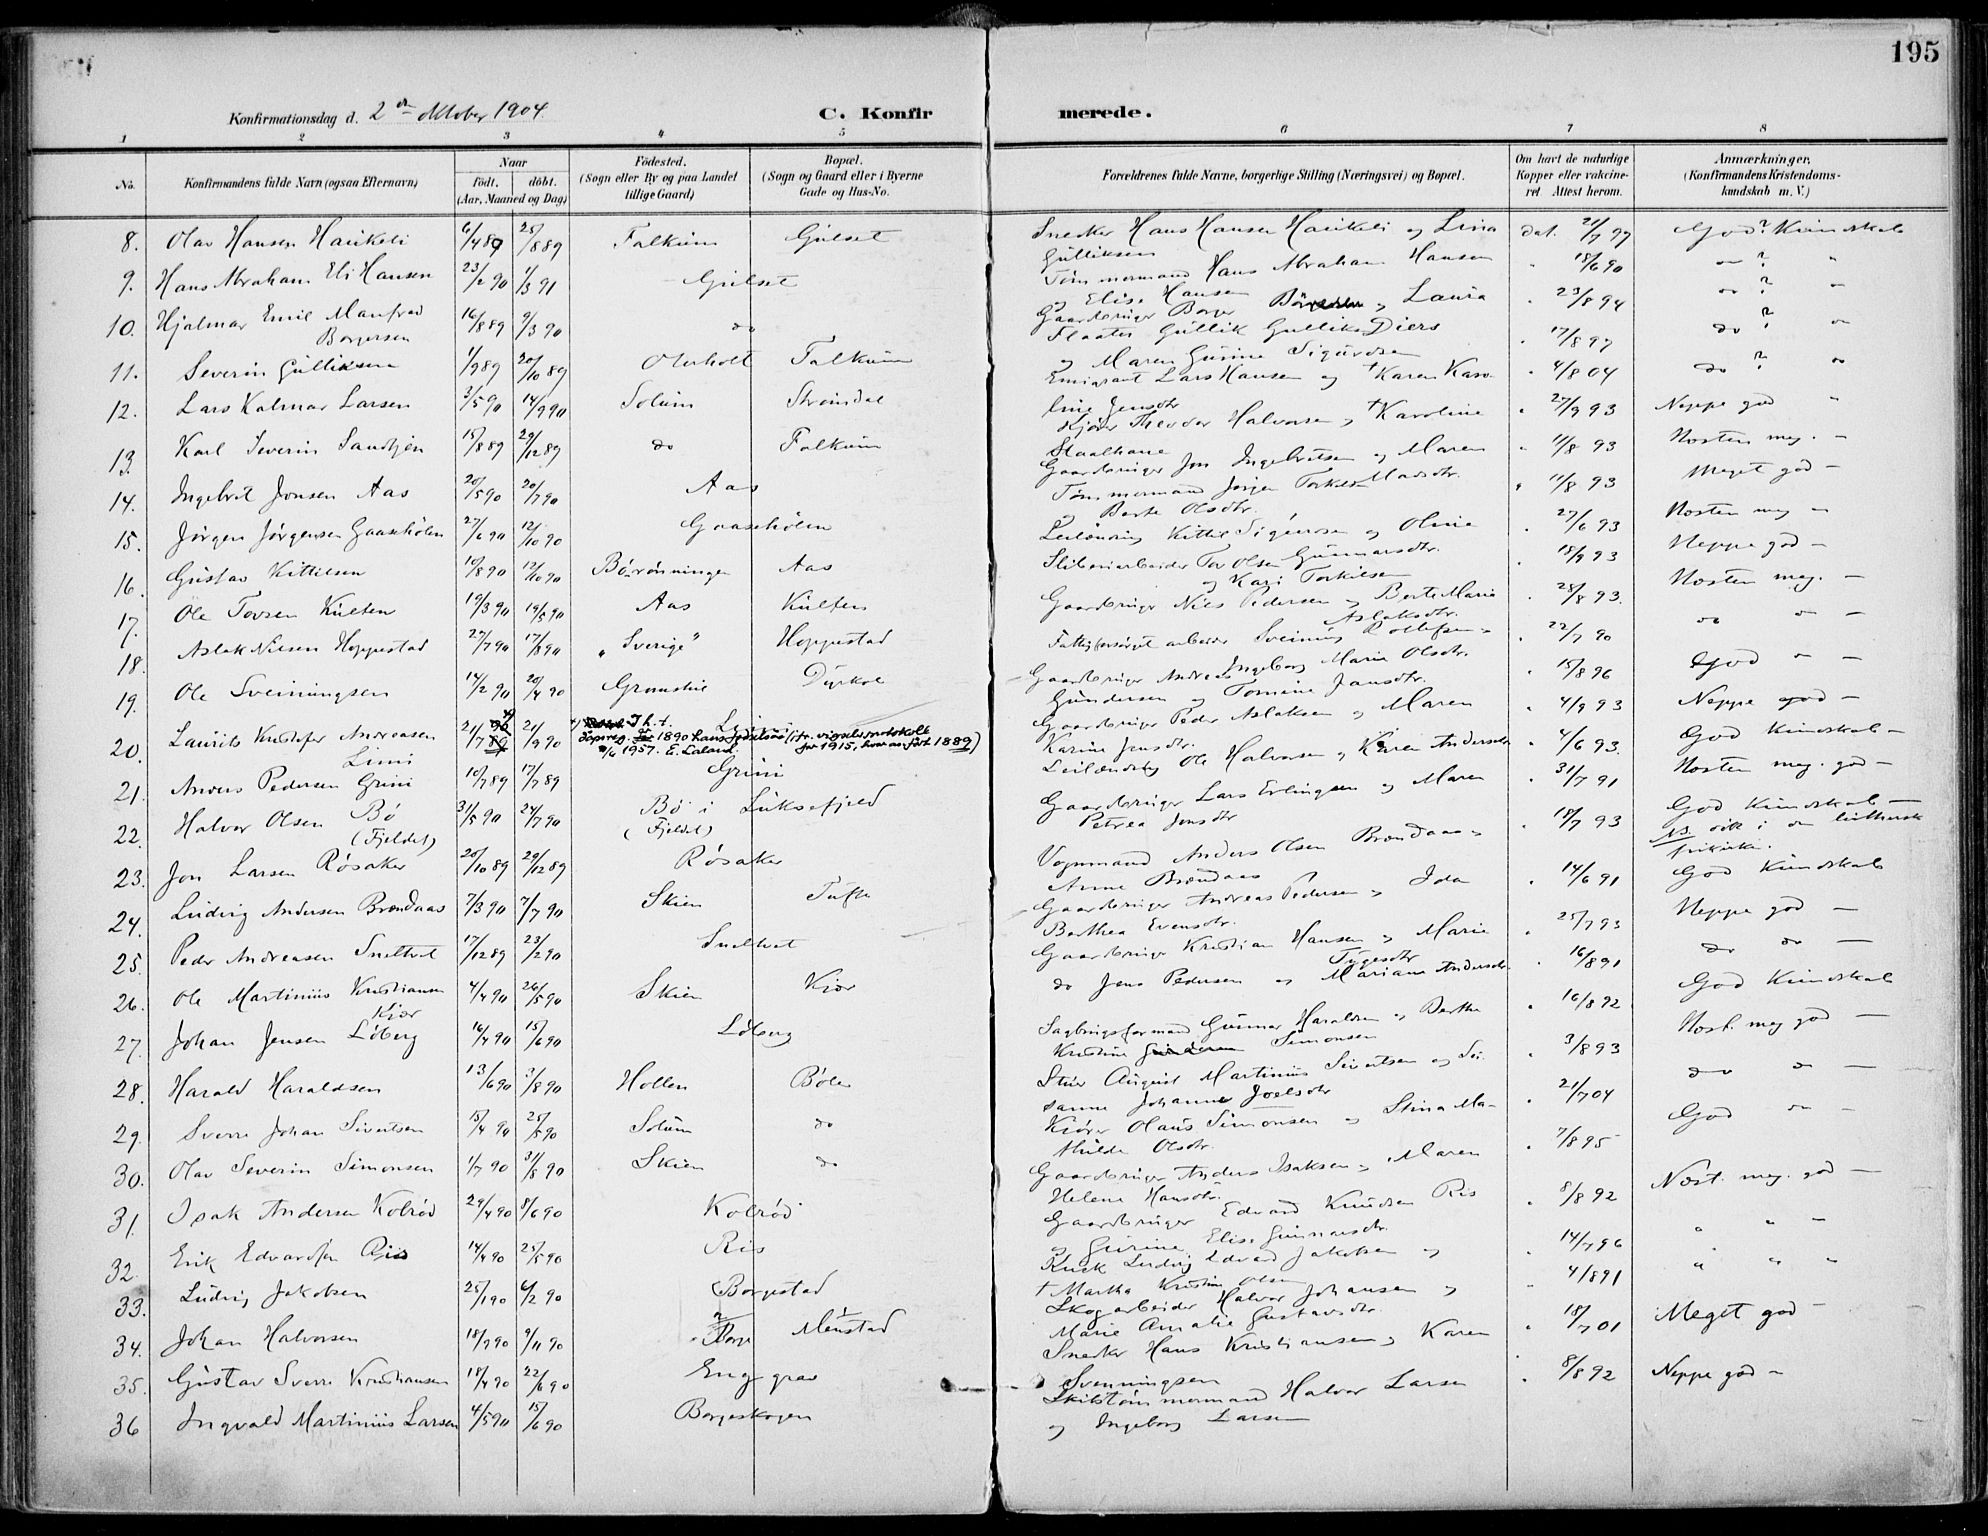 195
Konfirmationsdag d. 2den Oktober 1904.
C. Konfirmerede.
1 2 3 4 5 6 7 8
No.
Konfirmandens fulde Navn (ogsaa Efternavn)
Naar
født. døbt.
(Aar, Maaned og Dag)
Fødested.
(Sogn eller By og paa Landet
tillige Gaard)
Bopæl.
(Sogn og Gaard eller i Byerne
Gade og Hus-No.
Forældrenes fulde Navne, borgerlige Stilling (Næringsvei) og Bopæl.
Om havt de naturlige
Kopper eller vakcine-
ret. Attest herom.
Anmærkninger.
(Konfirmandens Kristendoms-
kundskab m. V.)
8. Olav Hansen Haukeli 6/4 89 25/8 89 Falkum Gulset Snedker Hans Hansen Haukeli og Lina Gulliksen dat. 21/7 97 God? Kundskab
9. Hans Abraham Eli Hansen 23/2 90 1/3 91 Gulset Tømmermand Hans Abraham Hansen og Elise Hansen " 18/6 90 do ? "
10. Hjalmar Emil Manfred Borgersen 16/8 89 9/3 90 do Gaardbruger Borger og Laura Diers " 23/8 94 do ? "
11. Severin Gulliksen 1/9 89 20/10 89 Oterholt Falkum Flaater Gullik Gulliksen og Maren Gurine Sigurdsen " 17/8 97 do ? "
12. Lars Kalmar Larsen 3/5 90 14/9 90 Solum Strømdal Emigrant Lars Hansen og † Karen Karoline Jensdtr " 4/8 04 do ? "
13. Karl Severin Sandjen 15/8 89 29/12 89 do Falkum Kjører Theodor Halvorsen og † Karoline Staalhane " 27/9 93 Neppe god "
14. Ingebret Jonsen Aas 20/5 90 20/7 90 Aas Gaardbruger Jon Ingebretsen og Maren Madsdtr. " 11/8 93 Næsten meg. –
15. Jørgen Jørgensen Gaasehølen 27/6 90 12/10 90 Gaasehølen Tømmermand Jørgen Torkilsen og Berte Olsdtr. " 11/8 93 Meget god –
16. Gustav Kittilsen 10/8 90 12/10 90 Bö-rønningen Aas Leilænding Kittil Sigurdsen og Oline Gunnarsdtr. " 27/6 93 Næsten meg –
17. Ole Torsen Kulten 19/3 90 19/5 90 Aas Kulten Sliberiarbeider Tor Olsen og Kari Torkilsen " 18/9 93 Neppe god –
18. Aslak Nilsen Hoppestad 27/7 90 17/8 90 „Sverige" Hoppestad Gaardbruger Nils Pedersen og Berte Marie Aslaksdtr. " 28/8 93. Næsten meg. –
19. Ole Sveinungsen 14/2 90 20/4 90 Gromstul Dyrkol Fattigforsørget arbeider Sveinung Rollefsen og Ingeborg Marie Olsdtr. " 22/7 90 do do –
20. Laurits Kristofer Andreasen Limi 21/7 21/9 90 1890 (jfr. vigselsprotokoll for 1915, hvor anført 1889) 1957. E. Laland. Gaardbruger Andreas Gundersen og Tomine Jansdtr. " 15/8 96 God " –
21. Anders Pedersen Grini 10/7 89 17/7 89 Grini Gaardbruger Peder Aslaksen og Maren Karine Jensdtr. " 4/9 93 Neppe god –
22. Halvor Olsen Bö (Fjeldet) 31/5 90 24/7 90 Bö i Luksefjeld (Fjeldet) Leilænding Ole Halvorsen og Karen Andersdtr " 4/6 93. God Kundskab –
23. Jon Larsen Røsaker 20/10 89 29/12 89 Røsaker Gaardbruger Lars Erlingsen og Maren Petrea Jonsdtr " 31/7 91 Næsten meg. god –
24. Ludvig Andersen Brændaas 7/3 90 7/7 90 Skien Tufte Vognmand Anders Olsen Brændaas og Anne Brændaas " 18/7 93 God Kundskab – NB. i den luthersk frikirke.
25. Peder Andreasen Sneltvet 17/12 89 23/2 90 Sneltvet Gaardbruger Andreas Pedersen og Ida Berthea Evensdtr. " 14/6 91 God Kundskab
26. Ole Martinius Kristiansen Kjær 4/4 90 26/5 90 Skien Kjær Gaardbruger Kristian Hansen og Marie Tygesdtr " 25/7 93 Neppe god –
27. Johan Jensen Løberg 16/4 90 15/6 90 Løberg do Jens Pedersen og Mariane Andersdtr. " 16/8 91 do do –
28. Harald Haraldsen 13/6 90 3/8 90 Hollen Böle Sagbrugsformand Gunnar Haraldsen og Berthe Kristine Simonsen " 16/8 92 God Kundskab
29. Sverre Johan Sivertsen 15/4 90 25/5 90 Solum do Stuer August Martinius Sivertsen og Susanne Johanne Joelsdtr " 3/8 93 Næst. meg god –
30. Olav Severin Simonsen 1/7 90 31/8 90 Skien do Kjører Olaus Simonsen og Stina Mathilde Olsdtr. " 21/7 04 do do –
31. Isak Andersen Kolrød 29/4 90 8/6 90 Kolrød Gaardbruger Anders Isaksen og Maren Helene Hansdtr. " 7/8 95 God do –
32. Erik Edvardsen Riis 14/4 90 25/5 90 Ris Gaardbruger Edvard Knudsen Ris og Gurine Elise Gunnarsdtr. " 8/8 92 Næst. meg. god –
33. Ludvig Jakobsen 25/1 90 6/2 90 Borgestad Kusk Ludvig Edvard Jakobsen og † Martha Kristine Olsen " 14/7 96 " " –
34. Johan Halvorsen 18/7 90 9/11 90 Borge Menstad Skogarbeider Halvor Johansen og Marie Amalie Gustavsdtr. " 4/8 91 " " "
35. Gustav Sverre Kristiansen 18/4 90 22/6 90 Enggrav Snedker Hans Kristiansen og Karen Svenningsen " 18/7 01 Meget god –
36 Ingvald Martinius Larsen 4/5 90 15/6 90 Borgeskogen Skibstømmermand Halvor Larsen og Ingeborg Larsen " 8/8 92 Neppe god –